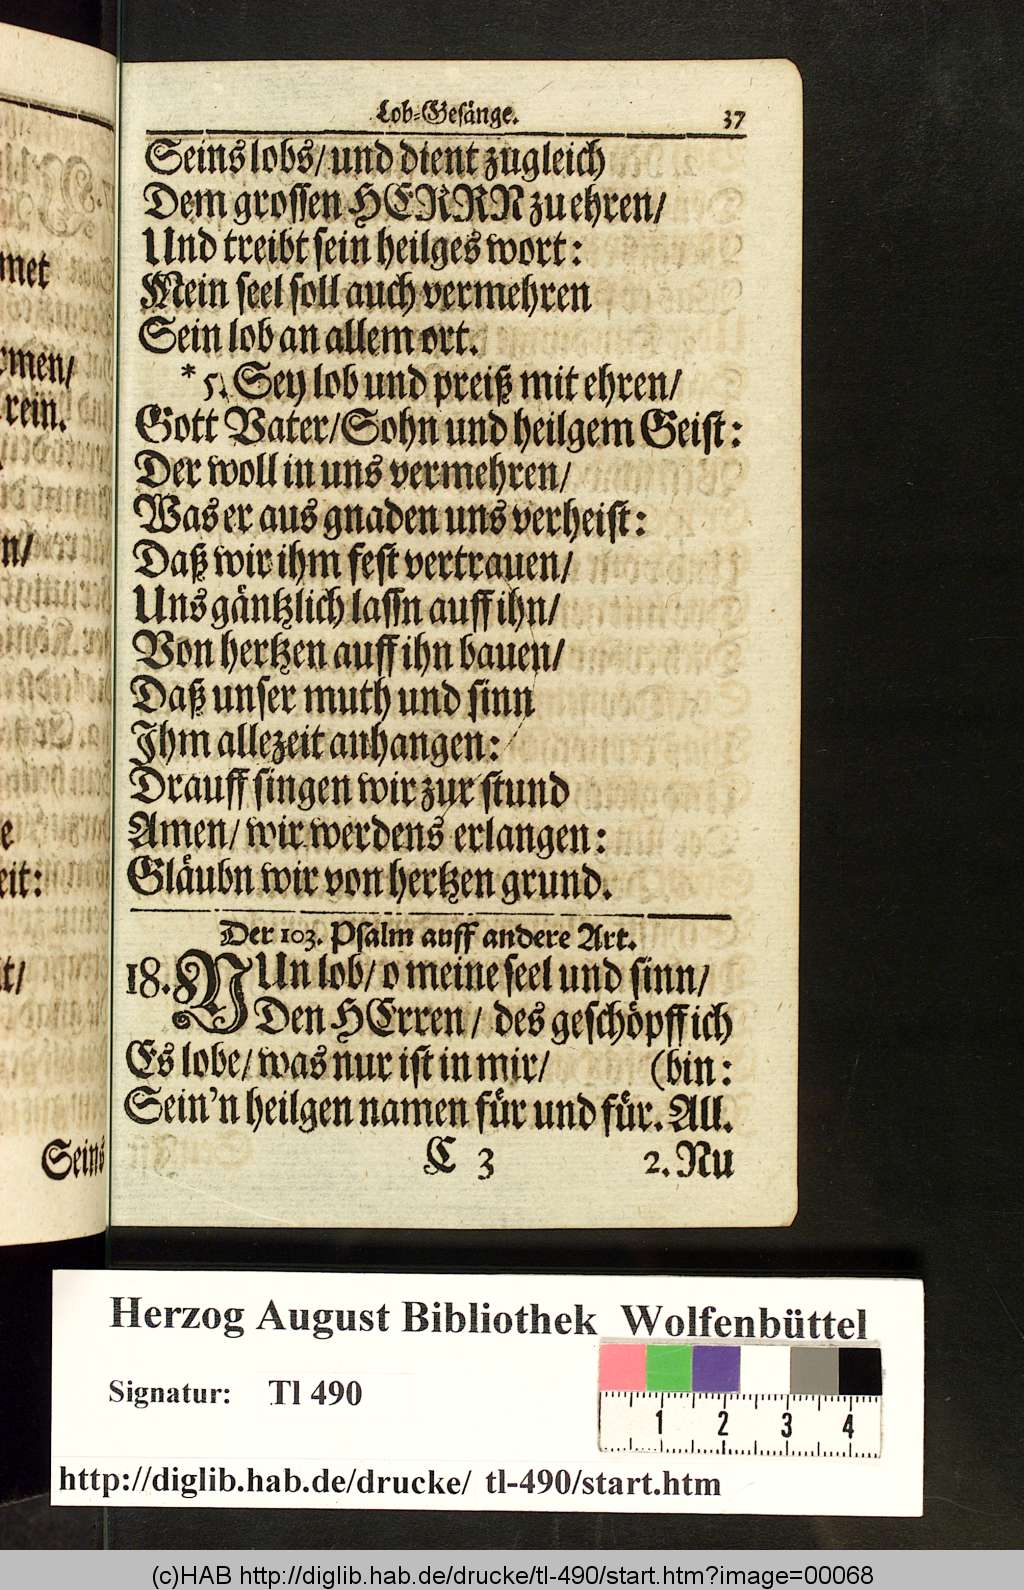 Lob-Gesänge. 37
Seins lobs/ und dient zugleich
Dem grossen HERRN zu ehren/
Und treibt sein heilges wort:
Mein seel soll auch vermehren
Sein lob an allem ort.
* 5. Sey lob und preiß mit ehren/
Gott Vater/ Sohn und heilgem Geist:
Der woll in uns vermehren/
Was er aus gnaden uns verheist:
Daß wir ihm fest vertrauen/
Uns gäntzlich lassn auff ihn/
Von hertzen auff ihn bauen/
Daß unser muth und sinn
Ihm allezeit anhangen:
Drauff singen wir zur stund
Amen/ wir werdens erlangen:
Gläubn wir von hertzen grund.
Der 103. Psalm auff andere Art.
18. NUn lob/ o meine seel und sinn/
Den HErren/ des geschöpff ich
Es lobe/ was nur ist in mir/ (bin:
Sein'n heilgen namen für und für. All.
C 3 2. Nu
met
rmen/
rein.
n/
e
eit:
t/
Seins
Herzog August Bibliothek Wolfenbüttel
Signatur: Tl 490
1 2 3 4
http://diglib.hab.de/drucke/ tl-490/start.htm
(c)HAB http://diglib.hab.de/drucke/tl-490/start.htm?image=00068